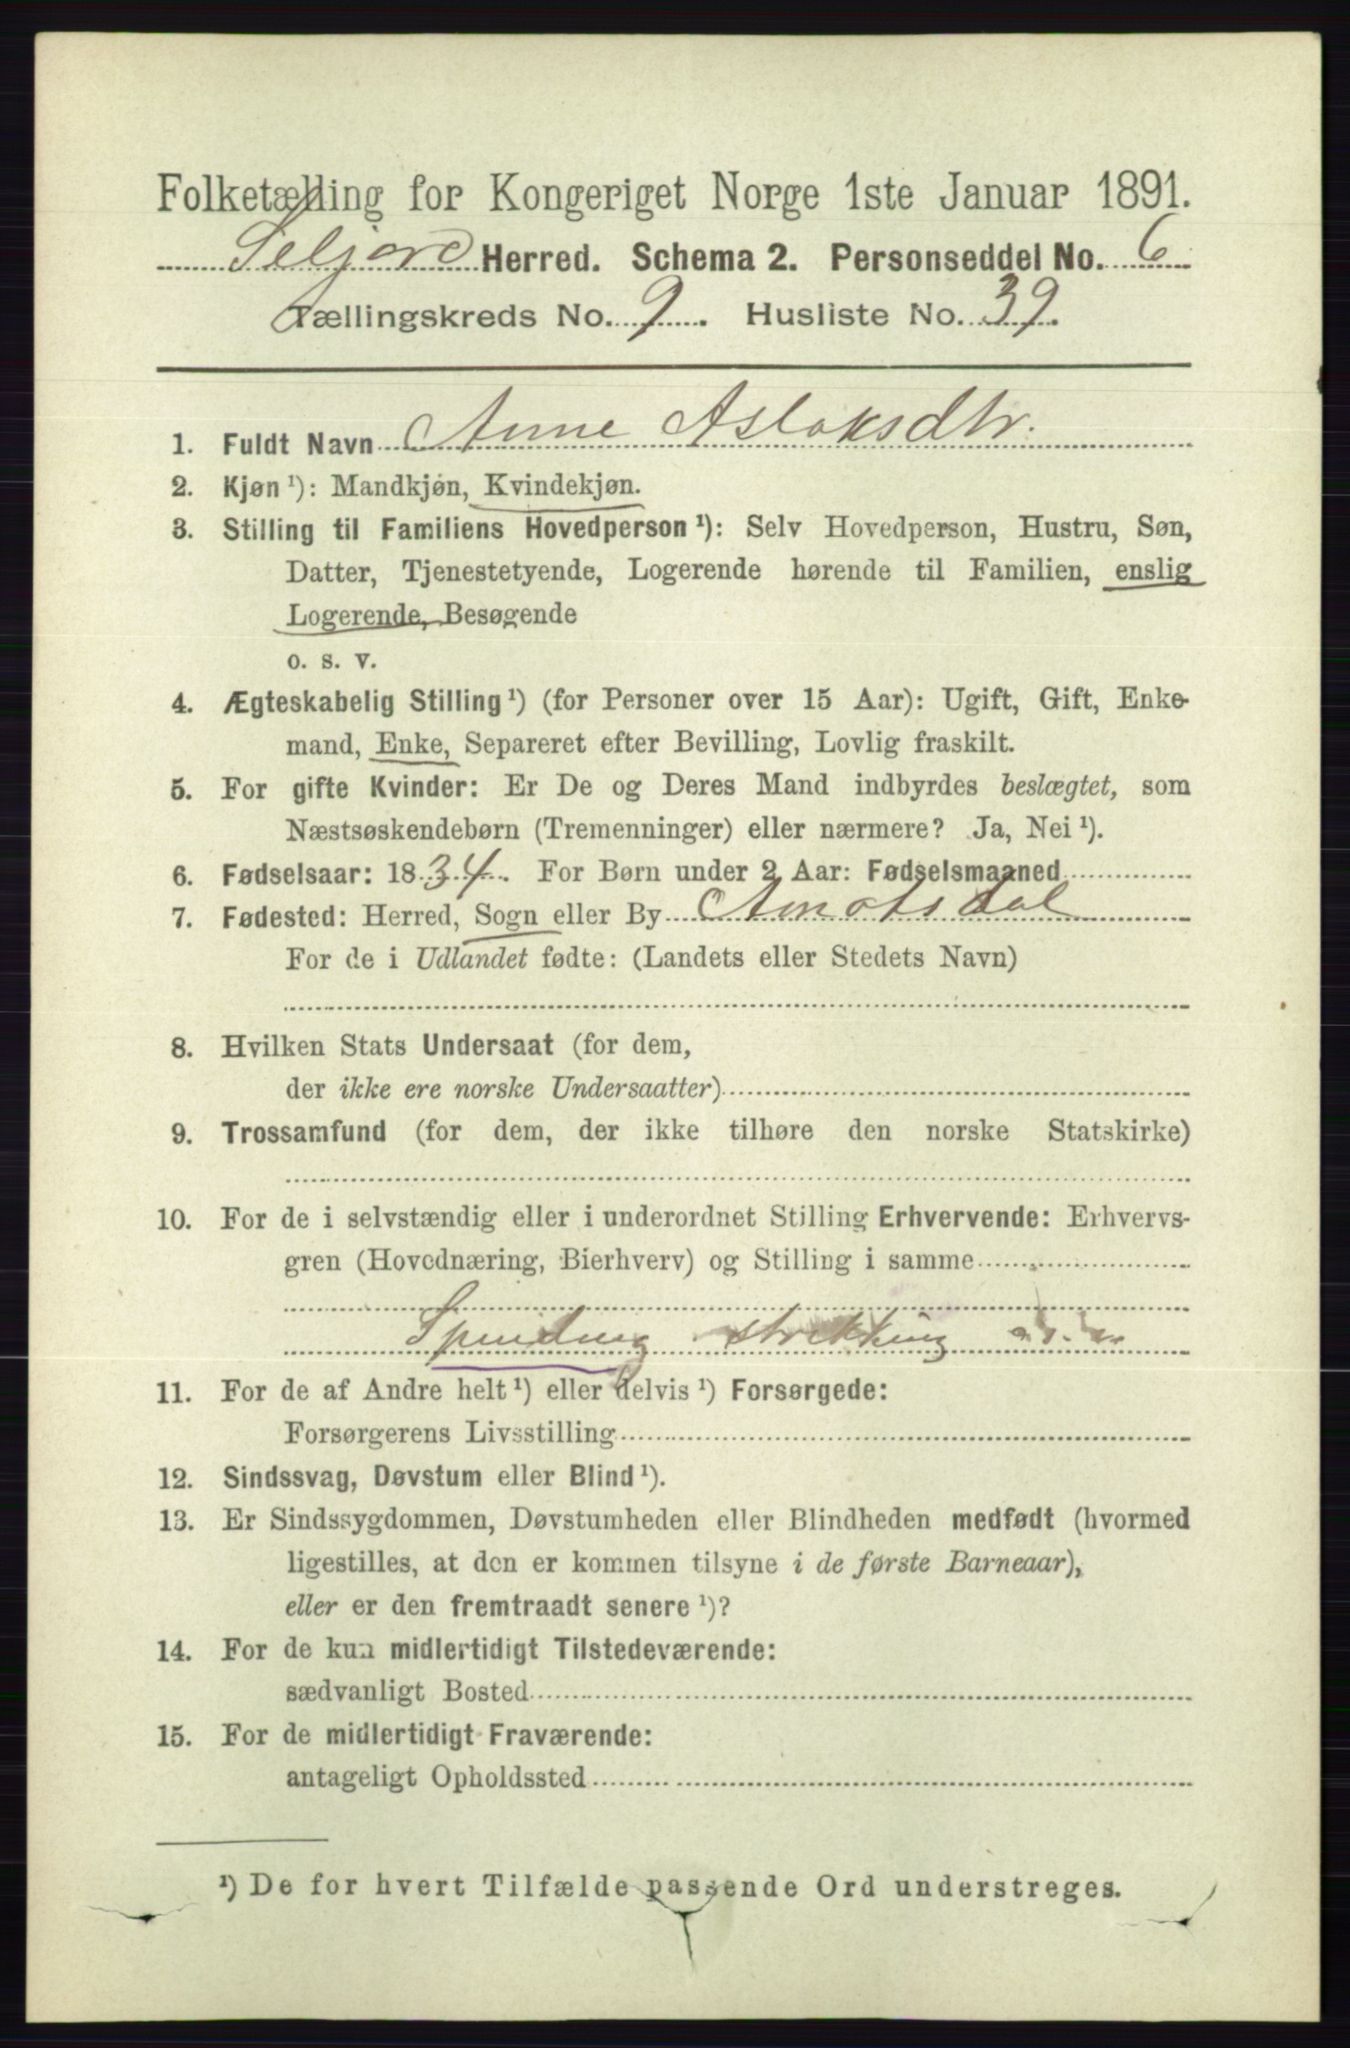 Folketælling for Kongeriget Norge 1ste Januar 1891.
Seljord Herred. Schema 2. Personseddel No. 6
Tællingskreds No. 9. Husliste No. 39.
1. Fuldt Navn Anne Aslaksdtr.
2. Kjøn ¹): Mandkjøn, Kvindekjøn.
3. Stilling til Familiens Hovedperson ¹): Selv Hovedperson, Hustru, Søn,
Datter, Tjenestetyende, Logerende hørende til Familien, enslig
Logerende, Besøgende
o. s. v.
4. Ægteskabelig Stilling ¹) (for Personer over 15 Aar): Ugift, Gift, Enke-
mand, Enke, Separeret efter Bevilling, Lovlig fraskilt.
5. For gifte Kvinder: Er De og Deres Mand indbyrdes beslægtet, som
Næstsøskendebørn (Tremenninger) eller nærmere? Ja, Nei ¹).
6. Fødselsaar: 1834. For Børn under 2 Aar: Fødselsmaaned
7. Fødested: Herred, Sogn eller By Amotsdal
For de i Udlandet fødte: (Landets eller Stedets Navn)
8. Hvilken Stats Undersaat (for dem,
der ikke ere norske Undersaatter)
9. Trossamfund (for dem, der ikke tilhøre den norske Statskirke)
10. For de i selvstændig eller i underordnet Stilling Erhvervende: Erhvervs-
gren (Hovednæring, Bierhverv) og Stilling i samme
Spinding strikking
11. For de af Andre helt ¹) eller delvis ¹) Forsørgede:
Forsørgerens Livsstilling
12. Sindssvag, Døvstum eller Blind ¹).
13. Er Sindssygdommen, Døvstumheden eller Blindheden medfødt (hvormed
ligestilles, at den er kommen tilsyne i de første Barneaar),
eller er den fremtraadt senere ¹)?
14. For de kun midlertidigt Tilstedeværende:
sædvanligt Bosted
15. For de midlertidigt Fraværende:
antageligt Opholdssted
¹) De for hvert Tilfælde passende Ord understreges.